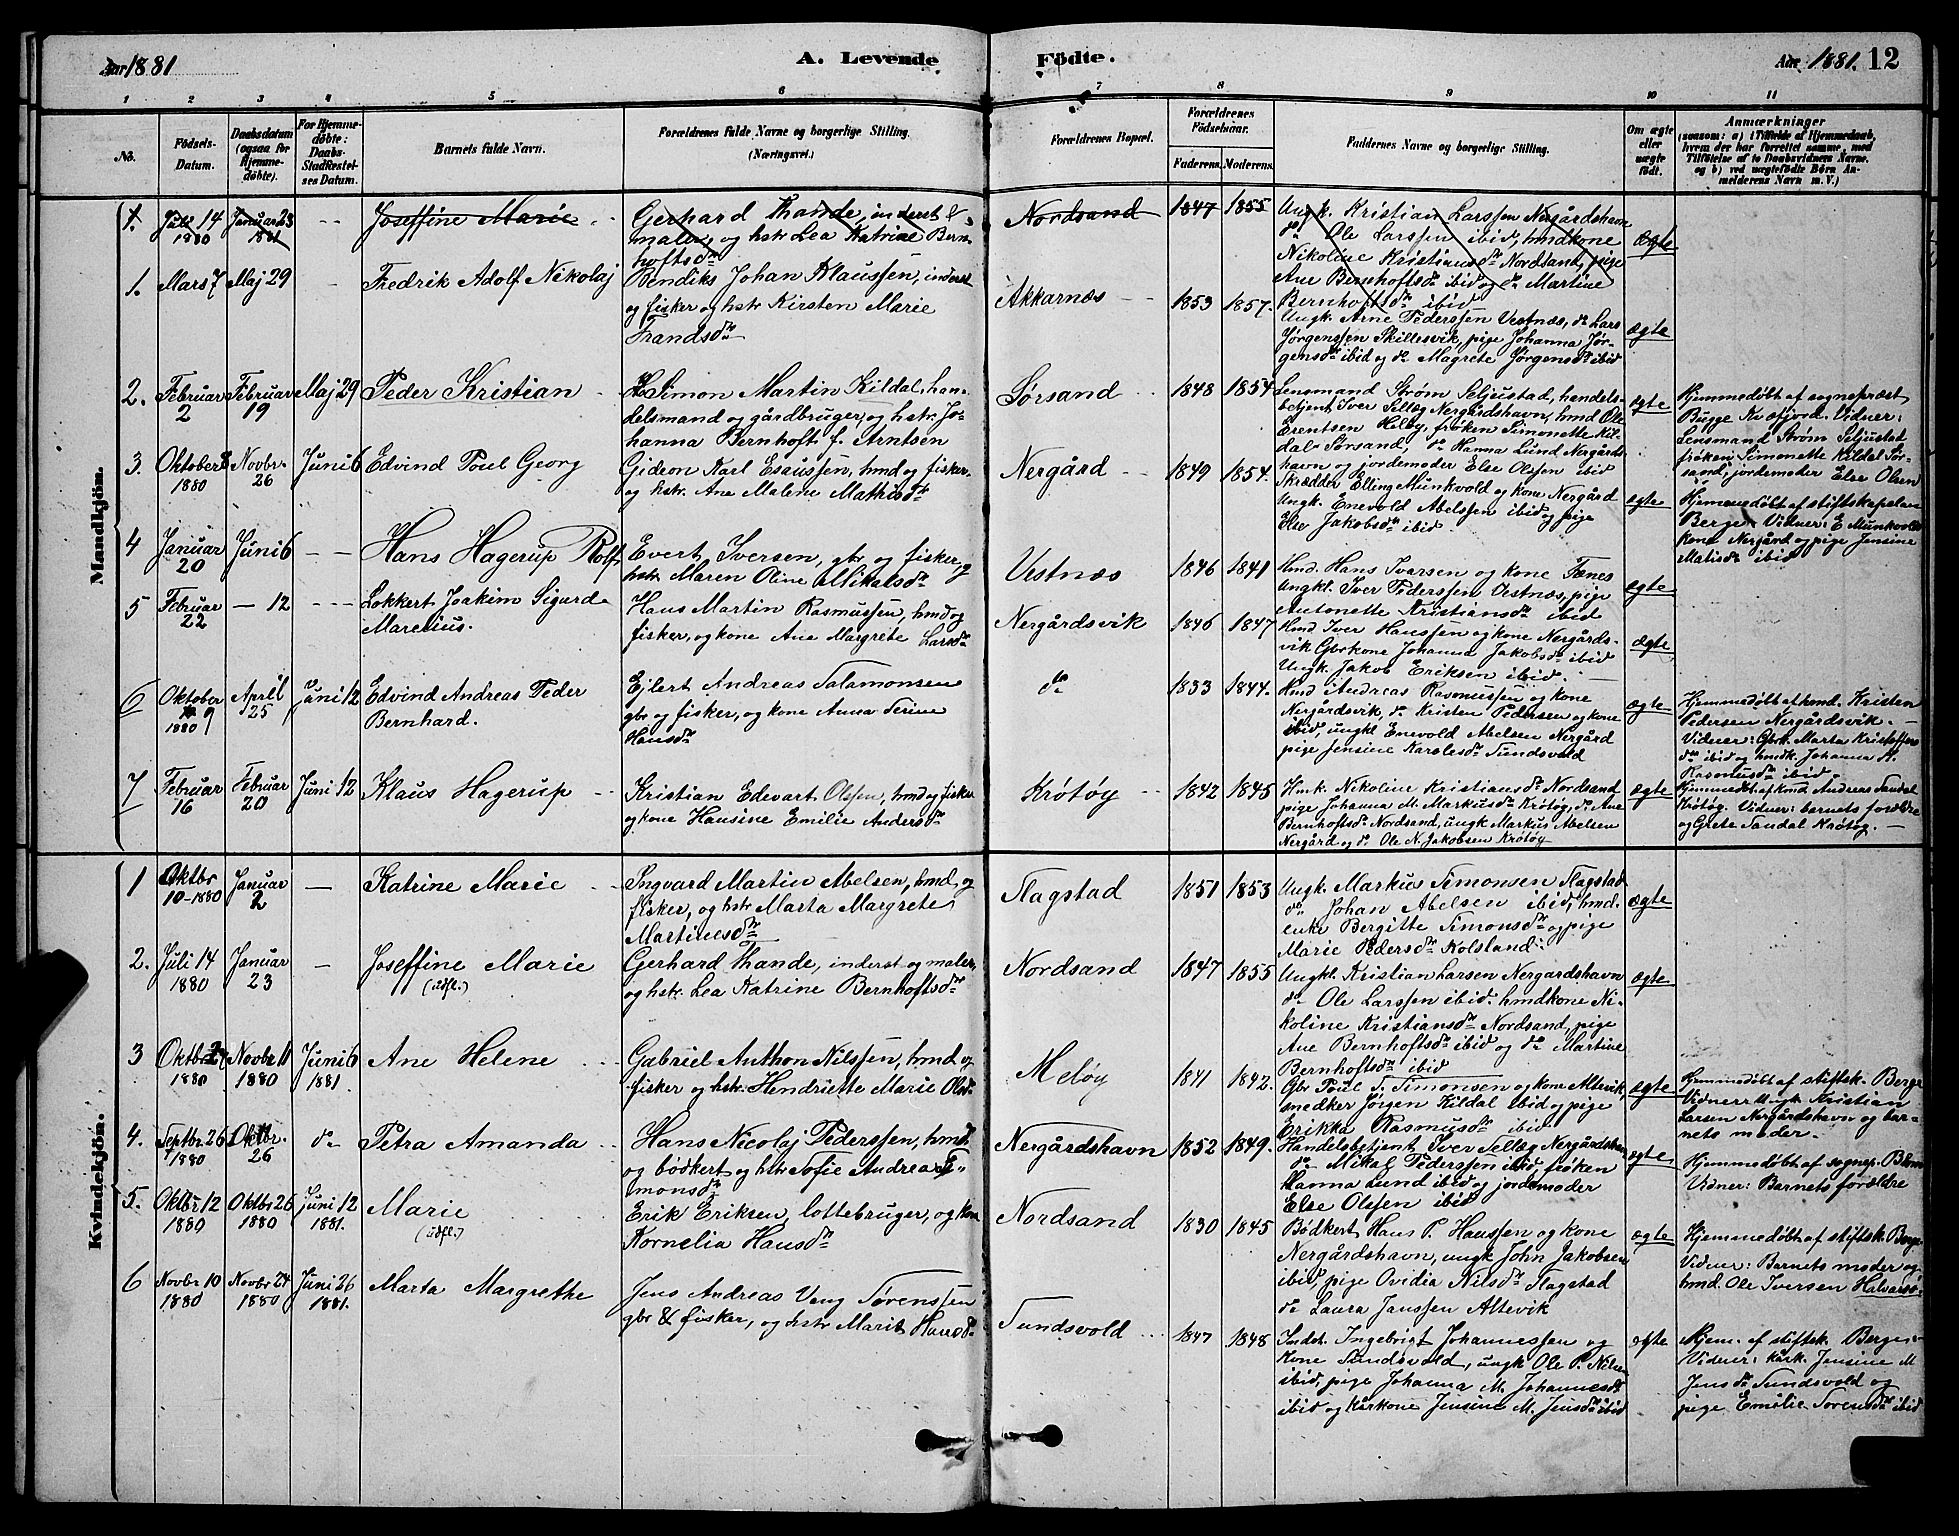 Aar 1881
A. Levende
Födte.
Aar 1881. 12
1 2 3 4 5 6 7 8 9 10 11
No.
Födsels-Datum.
Daabsdatum (ogsaa for Hjemmedöbte).
For Hjemmedöbte: Daabs-Stadfæstelses Datum.
Barnets fulde Navn.
Forældrenes fulde Navne og borgerlige Stilling. (Næringsvei.)
Forældrenes Bopæl.
Forældrenes Födselsaar.
Faderens. Moderens.
Faddernes Navne og borgerlige Stilling.
Om ægte eller uægte födt.
Anmærkninger
(saasom: a) i Tilfælde af Hjemmedaab, hvem der har forrettet samme, med Tilföielse af to Daabsvidners Navne. og b) ved uægtefödte Börn Anmelderens Navn m. V.)
Mandkjön.
1. Juli 14 1880 Januar 23 1881 -- Joseffine Marie
Gerhard Thande, inderst &
maler, og hstr Lea Katrine Bern-
hoftsdr
Nordsand 1847 1855
Ungk. Kristian Larssen Nergårdshavn
do Ole Larssen ibid, hmdkone
Nikoline Kristiansdr Nordsand, pige
Ane Bernhoftsdr ibid og do Martine
Bernhoftsdr ibid
ægte
1. Mars 7 Maj 29 - Fredrik Adolf Nikolaj
Bendiks Johan Klaussen, inderst
og fisker og hstr Kirsten Marie
Frandsdr
Akkarnæs 1853 1857.
Ungk. Arne Pederssen Vestnæs, do Lars
Jørgenssen Skillesvik, pige Johanna Jør-
gensdr ibid og do Magrete Jørgensdr ibid
ægte
2. Februar 2 Februar 19 Maj 29 Peder Kristian
Simon Martin Kildal, han-
delsmand og gårdbruger, og hstr Jo-
hanna Bernhoft f. Arntsen
Sørsand 1848 1854
Lensmand Strøm Seljestad, handels-
betjent Iver Selläg Nergårdshavn, hmd Ole
Erentsen Hiløy, frøken Simonette Kil-
dal Sørsand, do Hanna Lund Nergårds-
havn og jordemoder Else Olssen ibid
ægte
Hjemmedøbt af sognepræst
Bugge Kvæfjord. Vidner:
Lensmand Strøm Seljestad
frøken Simonette Kildal Sør-
sand, jordemoder Else Olsen
3. Oktober 8 1880 Novbr. 26 Juni 6 Edvind Poul Georg
Gideon Karl Esaussen, hmd og fisker
og hstr. Ane Malene Mathisdr
Nergård 1849 1854.
Skrædder Elling Munkvold og kone Nergård
Ungk. Enevold Abelssen ibid og pige
Elev Jakobsdr ibid.
ægte
Hjemmedøbt af stiftskapelan
Berge. Vidner: E. Munkvolds
kone Nergård og pige Jensine
Matisdr ibid
4 Januar 20 Juni 6 -- Hans Hagerup Rolf
Evert Iversen, gbr og fisker, og
hstr Maren Oline Mikalsdr
Vestnæs 1846 1841
Hmd. Hans Ivarsen og kone Fænes
Ungkl. Iver Pederssen Vestnæs, pige
Antonette Kristiansdr ibid
ægte
5 Februar 22 - 12 --- Lokkert Joakim Sigurd
Marelius.
Hans Martin Rasmussen, hmd og
fisker, og kone Ane Margrete Larsdr
Nergårdsvik 1846 1847
Hmd Iver Hanssen og kone Nergårds-
vik Gbrkone Johanna Jakobsdr ibid
Ungk. Jakob Eriksen ibid.
ægte
6 Oktober 9 1880 April 25 Juni 12 Edvind Andreas Peder
Bernhard.
Ejlert Andreas Salamonsen
gbr og fisker, og kone Anna Serine
Hansdr
do 1833 1844.
Hmd Andreas Rasmussen og kone
Nergårdsvik, do Kristen Pedersen og kone
ibid, ungkl Enevold Abelsen Nergård
pige Jensine Karolesdr Sundsvold
ægte
Hjemmedøbt af hmd. Kristen
Pedersen Nergårdsvik. -
Vidner: Gbrk. Marta Kristoffers
dr ibid og hmdk. Johanna H.
Rasmusdr ibid.
7 Februar 16 Februar 20 Juni 12 Klaus Hagerup
Kristian Edevart Olssen, hmd og fisker
og kone Hansine Emilie Andersdr
Krøtøy 1842 1845
Hmk. Nikoline Kristiansdr Nordsand,
pige Johanna M. Markusdr Krøtøy, do Ane
Bernhoftsdr Nordsand, ungk Markus Abelsen
Nergård og do Ole N. Jakobsen Krøtøy
ægte
Hjemmedøbt af Kand Andreas Sandal
Krøtøy. Vidner: barnets forældre
og Grete Sandal Krøtøy. -
Kvindekjön.
1 Oktbr 10-1880 Januar 2 - Katrine Marie
Ingvard Martin Abelsen, hmd og
fisker, og hstr Marta Margrete
Martinesdr
Flagstad 1851 1853
Ungk. Markus Simonsen Flagstad
do Johan Abelsen ibid, hmd.
enke Bergitte Simonsdr og pige
Marie Pedersdr Kolsland.
ægte
2. Juli 14 1880 Januar 23 - Joseffine Marie
(udfl.)
Gerhard Thande, inderst og maler,
og hstr. Lea Katrine Bernhoftsdr
Nordsand 1847 1855
Ungkl. Kristian Larsen Nergardshavn
do Ole Larssen ibid. hmdkone Ni-
koline Kristiansdr Nordsand, pige
Ane Bernhoftsdr ibid og do Martine
Bernhoftsdr ibid
ægte
3 Oktbr 24 1880 Novbr 11 1880 Juni 6 1881. Ane Helene
Gabriel Anthon Nilssen, hmd og
fisker og hstr. Hendriette Marie Olsdr
Meløy 1841 1842.
Gbr Poul S. Simonsen og kone Altevik,
snedker Jørgen Kildal ibid og pige
Erikka Rasmusdr ibid
ægte
Hjemmedøbt af stiftsk. Berge
Vidner: Ungk Kristian
Larsen Nergårdshavn og bar-
nets moder.
4. Septbr. 26 1880 Oktbr. 26 do Petra Amanda
Hans Nicolaj Pederssen, hmd
og bødkert og hstr Sofie Andrea Si-
monsdr
Nergårdshavn 1852 1849.
Handelsbetjent Iver Selläg Nergårdshavn
do Mikal Pederssen ibid, frøken
Hanna Lund ibid og jordemoder
Else Olssen ibid
ægte
Hjemmedøbt af sognep.
Vidner: Barnets forældre
5. Oktbr 12 1880 Oktbr 26 1880 Juni 12 1881. Marie
(udfl.)
Erik Eriksen, lottebruger, og kone
Kornelia Hansdr
Nordsand 1830 1845
Bødkert Hans P. Hanssen og kone
Nergårdshavn, ungk John Jakobsen
ibid, pige Ovidia Nilsdr Flagstad
do Laura Janssen Altevik
ægte
Hjemmedøbt af stiftsk. Berge
Vidner: Barnets moder og
hmd. Ole Iversen Halvarsø.
6 Novbr 10 1880 Novbr 24 1880 Juni 26 1881. Marta Margrethe
Jens Andreas Veng Sørenssen
gbr & fisker, og hstr Marit Hansdr
Sundsvold 1847 1848
Indst. Ingebrigt Johannessen og
kone Sundsvold, ungk Ole P. Nilsen
ibid, pige Johanna M. Johannesdr
ibid og kårkone Jensine M. Jensdr ibid
ægte
Hjem. af stiftsk. Berge.
Vidner: kårk. Jensine M
Jensdr Sundsvold og
pige Emelie Sørensdr ibid